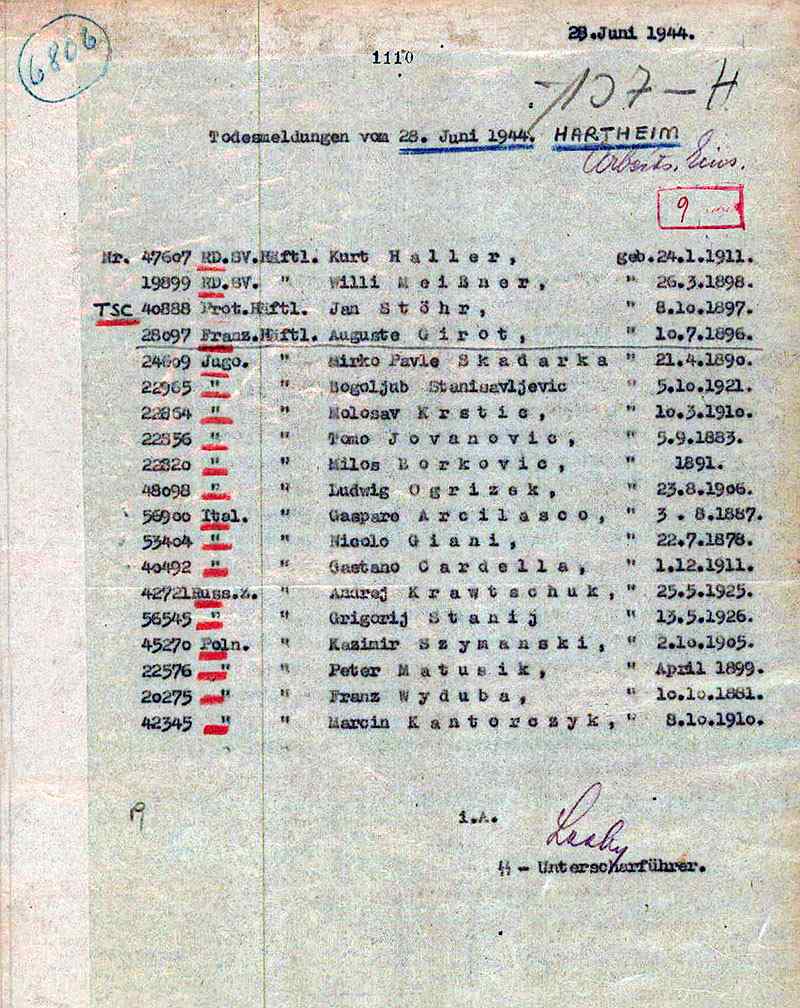 28.Juni 1944.
6806
1110
107-H
Todesmeldungen vom 28. Juni 1944. HARTHEIM
Arbeits. Eins.
9
Nr. 47607 RD.SV.Häftl. Kurt H a l l e r , geb.24.1.1911.
19899 RD.SV. " Willi M e i ß n e r , " 26.3.1898.
TSC 40888 Prot.Häftl. Jan S t ö h r , " 8.1o.1897.
28o97 Franz.Häftl. Auguste G i r o t , " 1o.7.1896.
24609 Jugo. " Mirko Pavle S k a d a r k a " 21.4.1890.
22965 " " Bogoljub Stanisavljevic " 5.1o.1921.
22864 " " Molosav K r s t i c , " 1o.3.191o.
22856 " " Tomo J o v a n o v i c , " 5.9.1883.
22820 " " Milos B o r k o v i c , " 1891.
48o98 " " Ludwig O g r i z e k , " 23.8.19o6.
569oo Ital. " Gaspare A r c i l a s c o , " 3 . 8.1887.
534o4 " " Nicolo G i a n i , " 22.7.1878.
4o492 " " Gaetano C a r d e l l a , " 1.12.1911.
42721Russ.Z. " Andrej K r a w t s c h u k , " 25.5.1925.
56545 " " Grigorij S t a n i j " 13.5.1926.
4527o Poln. " Kazimir S z y m a n s k i , " 2.1o.19o5.
22576 " " Peter M a t u s i k , " April 1899.
2o275 " " Franz W y d u b a , " 1o.1o.1881.
42345 " " Marcin K a n t o r c z y k , " 8.1o.191o.
19
i.A.
ϟϟ - Unterscharführer.